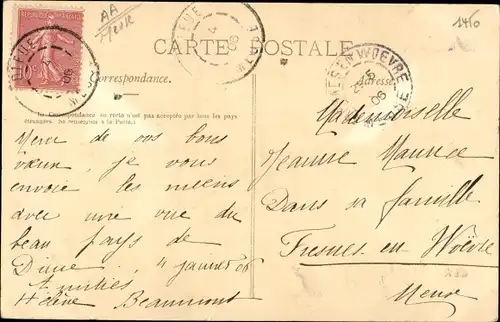 AA
1410
REPUBLIQUE FRANÇAISE
DIEUE
4
06
MEUSE
DIEUE
4
06
MEUSE
CARTE POSTALE
FRESNES EN WOEVRE
06
MEUSE
Correspondance.
Adresse
la Correspondance au recto n'est pas acceptée par tous les pays
étrangers. (Se renseigner à la Poste).
Merci de vos bons
vœux, je vous
envoie les miens
avec une vue du
beau pays de
Dieue, 4 janvier 06
Amitiés
Hélène Beaumont
Mademoiselle
Jeanne Maurice
Dans sa famille
Fresnes en Woëvre
Meuse